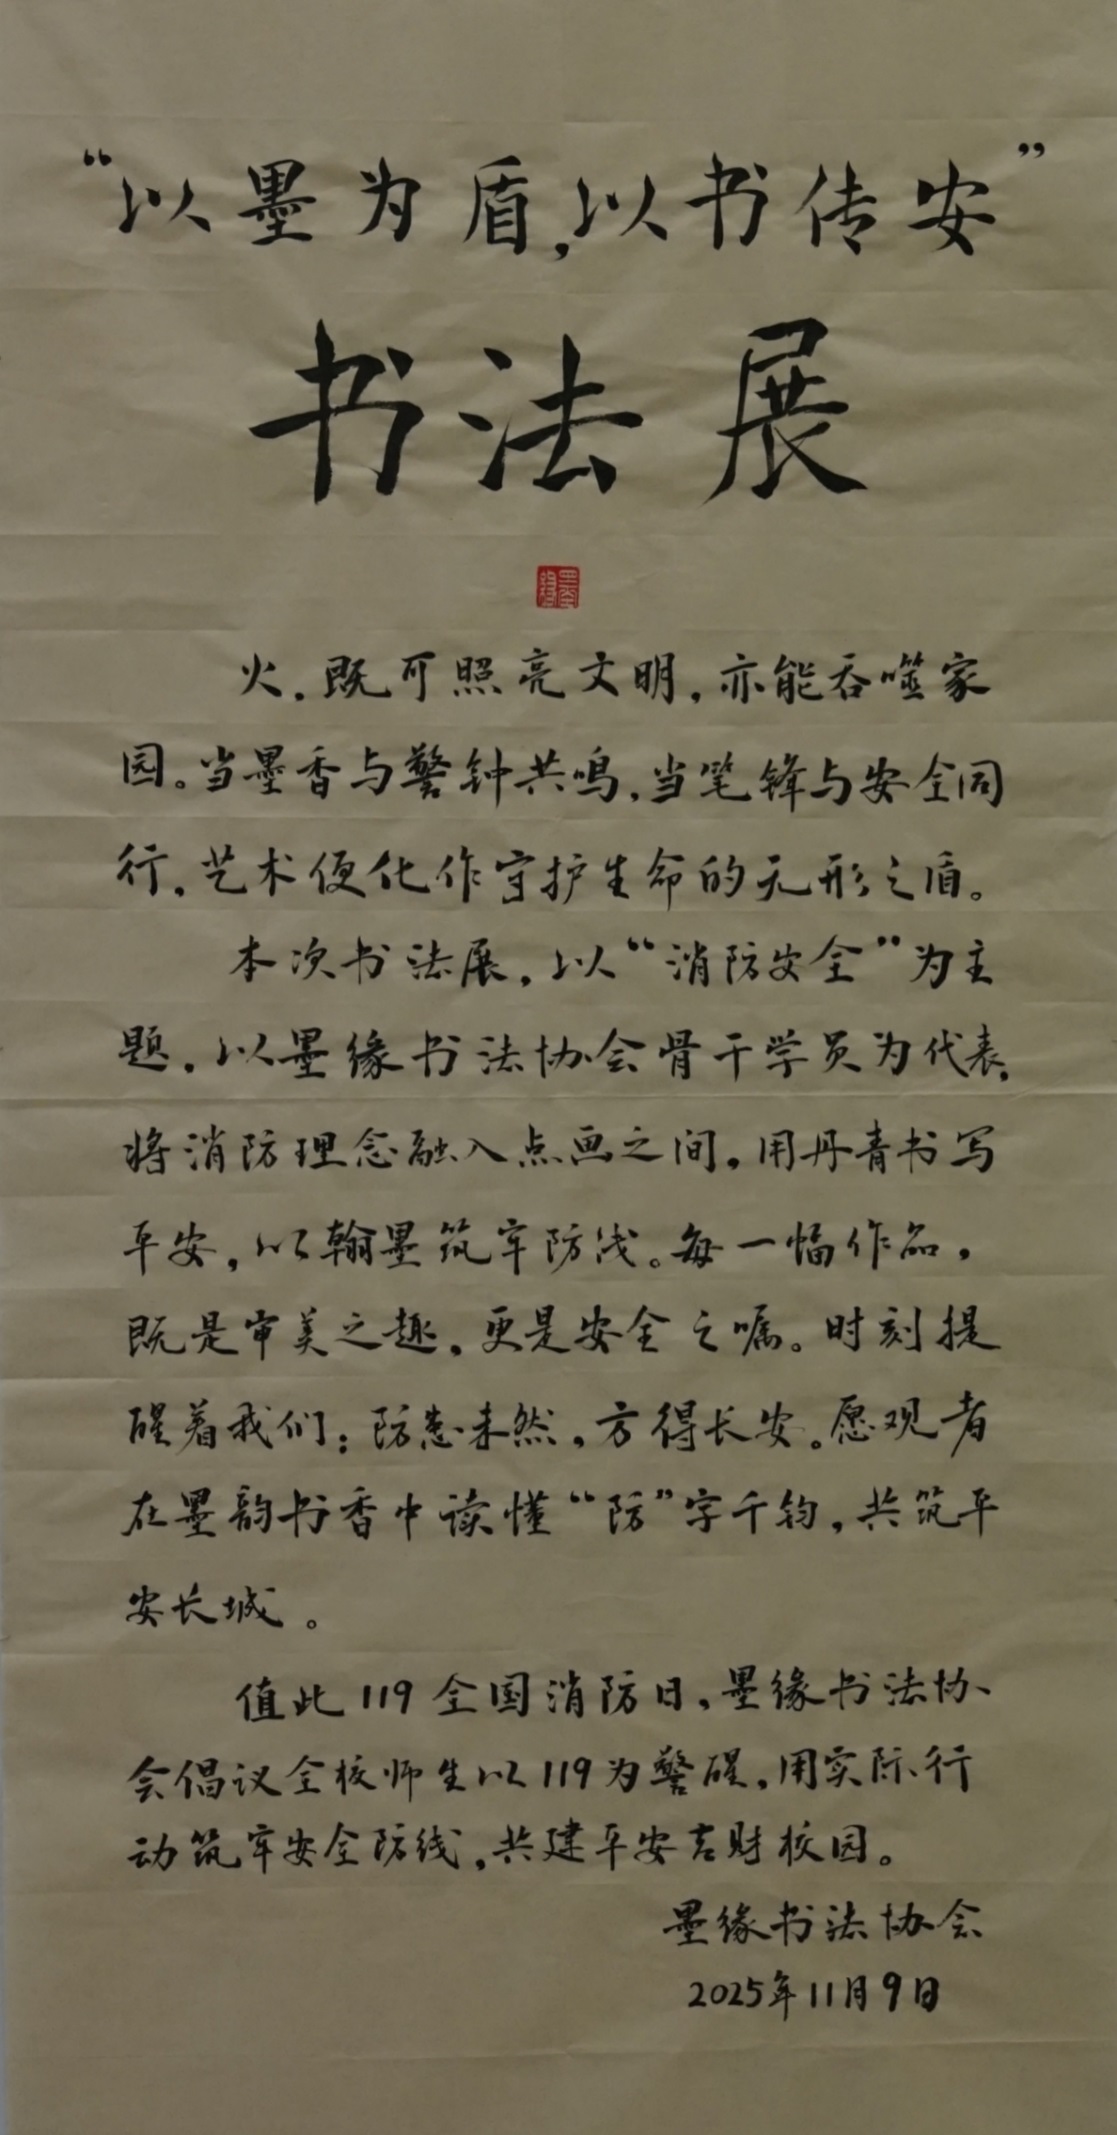 “以墨为盾,以书传安”
书法展
墨缘
火，既可照亮文明，亦能吞噬家
园。当墨香与警钟共鸣，当笔锋与安全同
行，艺术便化作守护生命的无形之盾。
本次书法展，以“消防安全”为主
题，以墨缘书法协会骨干学员为代表，
将消防理念融入点画之间，用丹青书写
平安，以翰墨筑牢防线。每一幅作品，
既是审美之趣，更是安全之嘱。时刻提
醒着我们：防患未然，方得长安。愿观者
在墨韵书香中读懂“防”字千钧，共筑平
安长城。
值此119全国消防日，墨缘书法协
会倡议全校师生以119为警醒，用实际行
动筑牢安全防线，共建平安吉财校园。
墨缘书法协会
2025年11月9日